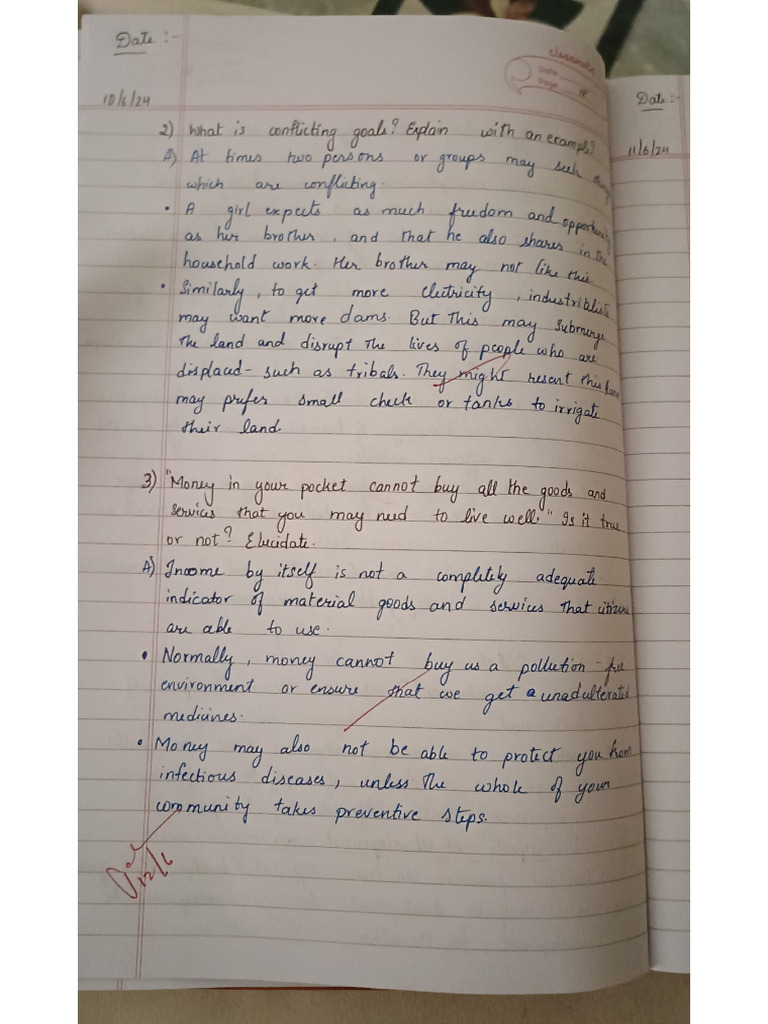 Date :-
classmate
Date
Page 18
10/6/24
2) What is conflicting goals? Explain with an example?
A) At times two persons or groups may seek things
which are conflicting.
• A girl expects as much freedom and opportunity
as her brother, and that he also shares in the
household work. Her brother may not like this.
• Similarly, to get more electricity, industrialists
may want more dams. But this may submerge
the land and disrupt the lives of people who are
displaced - such as tribals. They might resent this
may prefer small check or tanks to irrigate
their land
3) "Money in your pocket cannot buy all the goods and
services that you may need to live well." Is it true
or not? Elucidate.
A) Income by itself is not a completely adequate
indicator of material goods and services that citizens
are able to use.
• Normally, money cannot buy us a pollution-free
environment or ensure that we get a unadulterated
medicines.
• Money may also not be able to protect you from
infectious diseases, unless the whole of your
community takes preventive steps.
12/6
Date :-
11/6/24